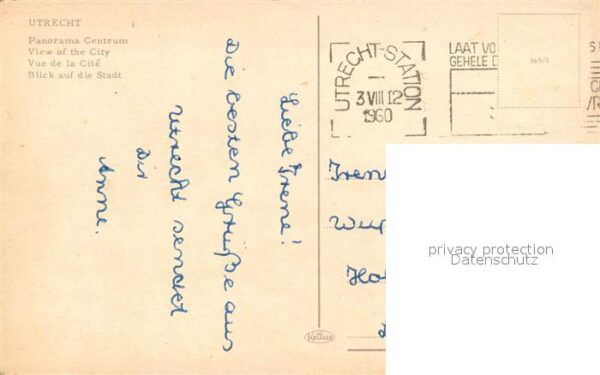 UTRECHT
Panorama Centrum
View of the City
Vue de la Cité
Blick auf die Stadt
Liebe Irene!
Die besten Grüße aus
Utrecht sendet
Dir
Anne.
UTRECHT-STATION
3 VIII 12
1960
LAAT VO
GEHELE D
969/2
Iren
privacy protection
Datenschutz
KRÜGER